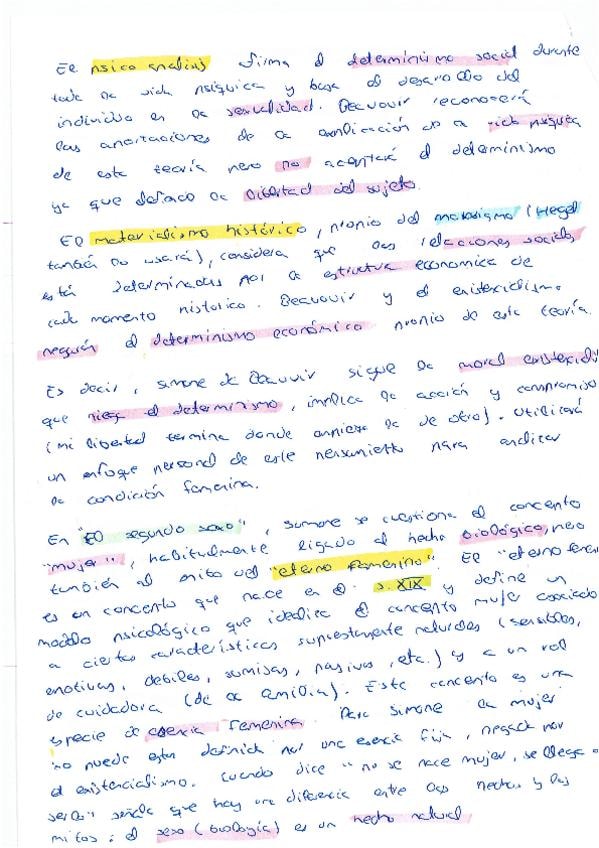 El psicoanálisis afirma el determinismo social durante
toda la vida psíquica y basa el desarrollo del
individuo en la sexualidad. Beauvoir reconocerá
las aportaciones de la explicación de la vida psíquica
de esta teoría pero no aceptará el determinismo
ya que defiende la libertad del sujeto.
El materialismo histórico, propio del marxismo (Hegel
también lo usará), considera que las relaciones sociales
está determinadas por la estructura económica de
cada momento histórico. Beauvoir y el existencialismo
negarán el determinismo económico propio de esta teoría.
Es decir, simone de Beauvoir sigue la moral existencial
que niega el determinismo, implica la acción y compromiso
(mi libertad termina donde empieza la de otro). Utilizará
un enfoque personal de este pensamiento para analizar
la condición femenina.
En "El segundo sexo", simone se cuestiona el concepto
"mujer", habitualmente ligado al hecho biológico, pero
también al mito del "eterno femenino". El "eterno femen
es un concepto que nace en el s. XIX y define un
modelo psicológico que idealiza el concepto mujer asociado
a ciertas características supuestamente naturales (sensibles,
emotivas, debiles, sumisas, pasivas, etc.) y a un rol
de cuidadora (de la familia). Este concepto es una
especie de esencia femenina. Para simone la mujer
no puede estar definida por una esencia fija, negada por
el existencialismo. Cuando dice "no se nace mujer, se llega a
serlo" señala que hay una diferencia entre los hechos y los
mitos: el sexo (biología) es un hecho natural